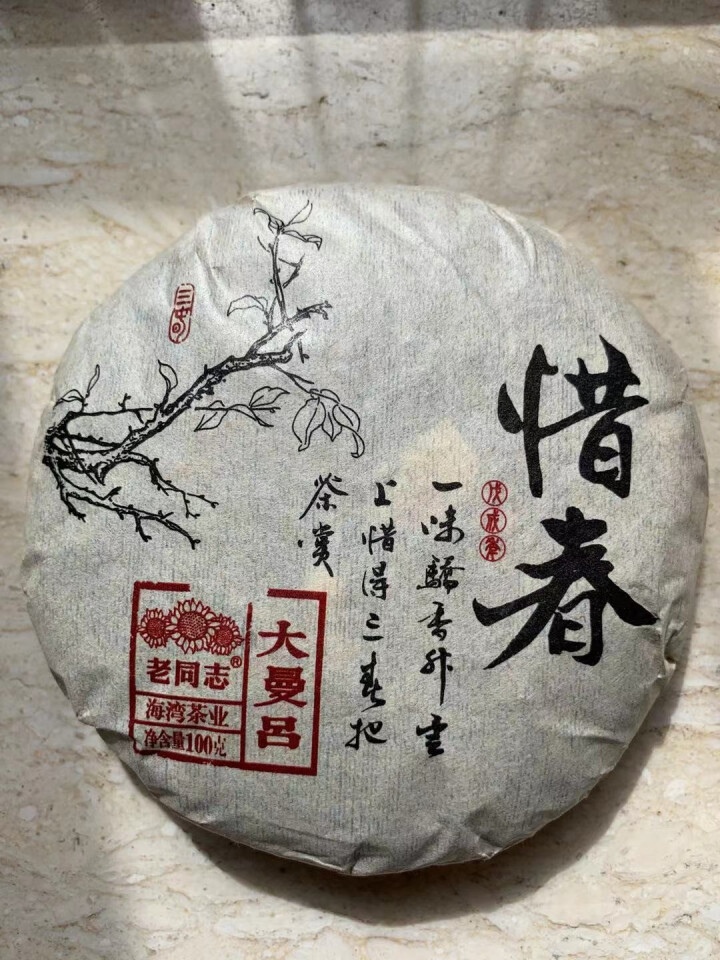 惜春
戊戌
一味驕香升雲
上惜得三春把
茶赏
大曼吕
老同志®
海湾茶业
净含量100克